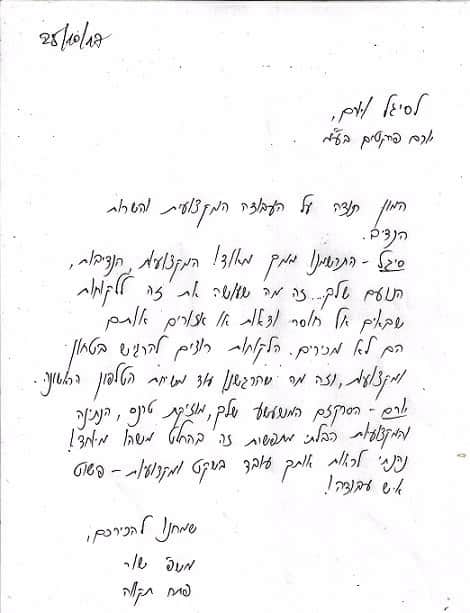 25/10/12
לסיגל ויורם,
יורם פרוקטים בע"מ
המון תודה על העבודה המקצועית והשרות
הנדיב.
סיגל - התרשמנו ממך מאוד! המקצועיות, הנדיבות,
הנועם שלך... זה מה שעושה את זה ללקוחות
שבאים אל חוסר ודאות או אצורים אותם
הם לא מכירים. הלקוחות רוצים להרגיש בטחון
ומקצועיות, וזה מה שהרגשנו עוד משיחת הטלפון הראשונה.
יורם - הסרקזם המשעשע שלך, מוזיקת טרנס, הנתינה
והמקצועיות הבלתי מתפשרת זה בהחלט משהו מיוחד!
נהנתי לראות אותך עובד בשקט ומקצועיות - פשוט
איש עבודה!
שמחנו להכירכם,
משפ' שור
פתח תקווה